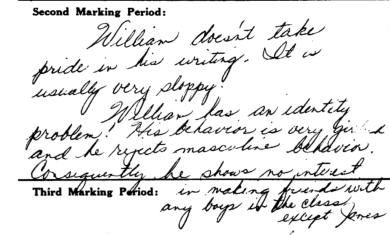 Second Marking Period:
William doesn't take
pride in his writing. It is
usually very sloppy.
William has an identity
problem! His behavior is very
and he rejects masculine behavior.
Consequently he shows no interest
Third Marking Period: in making friends with
any boys in the class
except